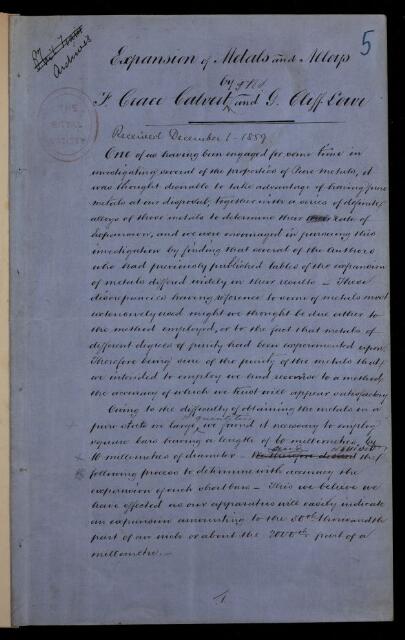 5
Archives
Expansion of Metals and Alloys
by
F. Crace Calvert and G. Cliff Lowe
THE
ROYAL
SOCIETY
Received December 1 - 1859
One of us having been engaged for some time in
investigating several of the properties of Pure metals, it
was thought desirable to take advantage of having pure
metals at our disposal, together with a series of definite
alloys of those metals to determine their Rate of
Expansion, and we were encouraged in pursuing this
investigation by finding that several of the Authors
who had previously published tables of the expansion
of metals differed widely in their results - These
discrepancies having reference to some of metals most
extensively used might we thought be due either to
the method employed, or to the fact that metals of
different degrees of purity had been experimented upon.
Therefore being sure of the purity of the metals that
we intended to employ we had recourse to a method
the accuracy of which we trust will appear satisfactory
Owing to the difficulty of obtaining the metals in a
pure state in large quantities, we found it necessary to employ
square bars having a length of 60 millimetres by
10 millimetres of diameter - and the
following process to determine with accuracy the
expansion of such short bars - This we believe we
have effected as our apparatus will easily indicate
an expansion amounting to the 50th thousandth
part of an inch or about the 2000th part of a
millimetre. -
1